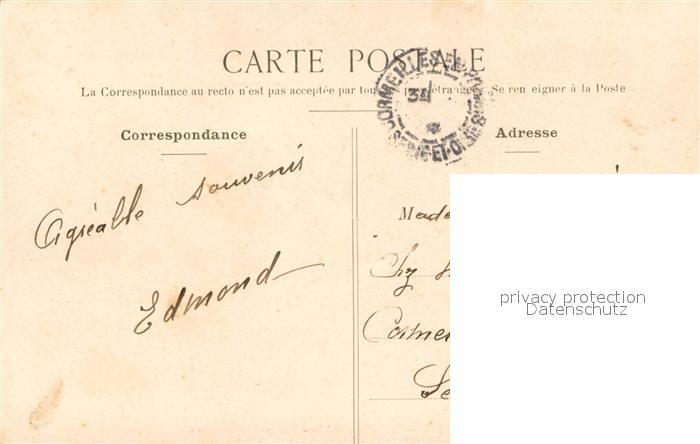 CARTE POSTALE
La Correspondance au recto n'est pas acceptée par tous étrangers. Se renseigner à la Poste
Correspondance
Adresse
Agréable souvenir
Edmond
CORMEILLES EN
SEINE-ET-OISE
Made
Chz
Cormei
Se
privacy protection
Datenschutz